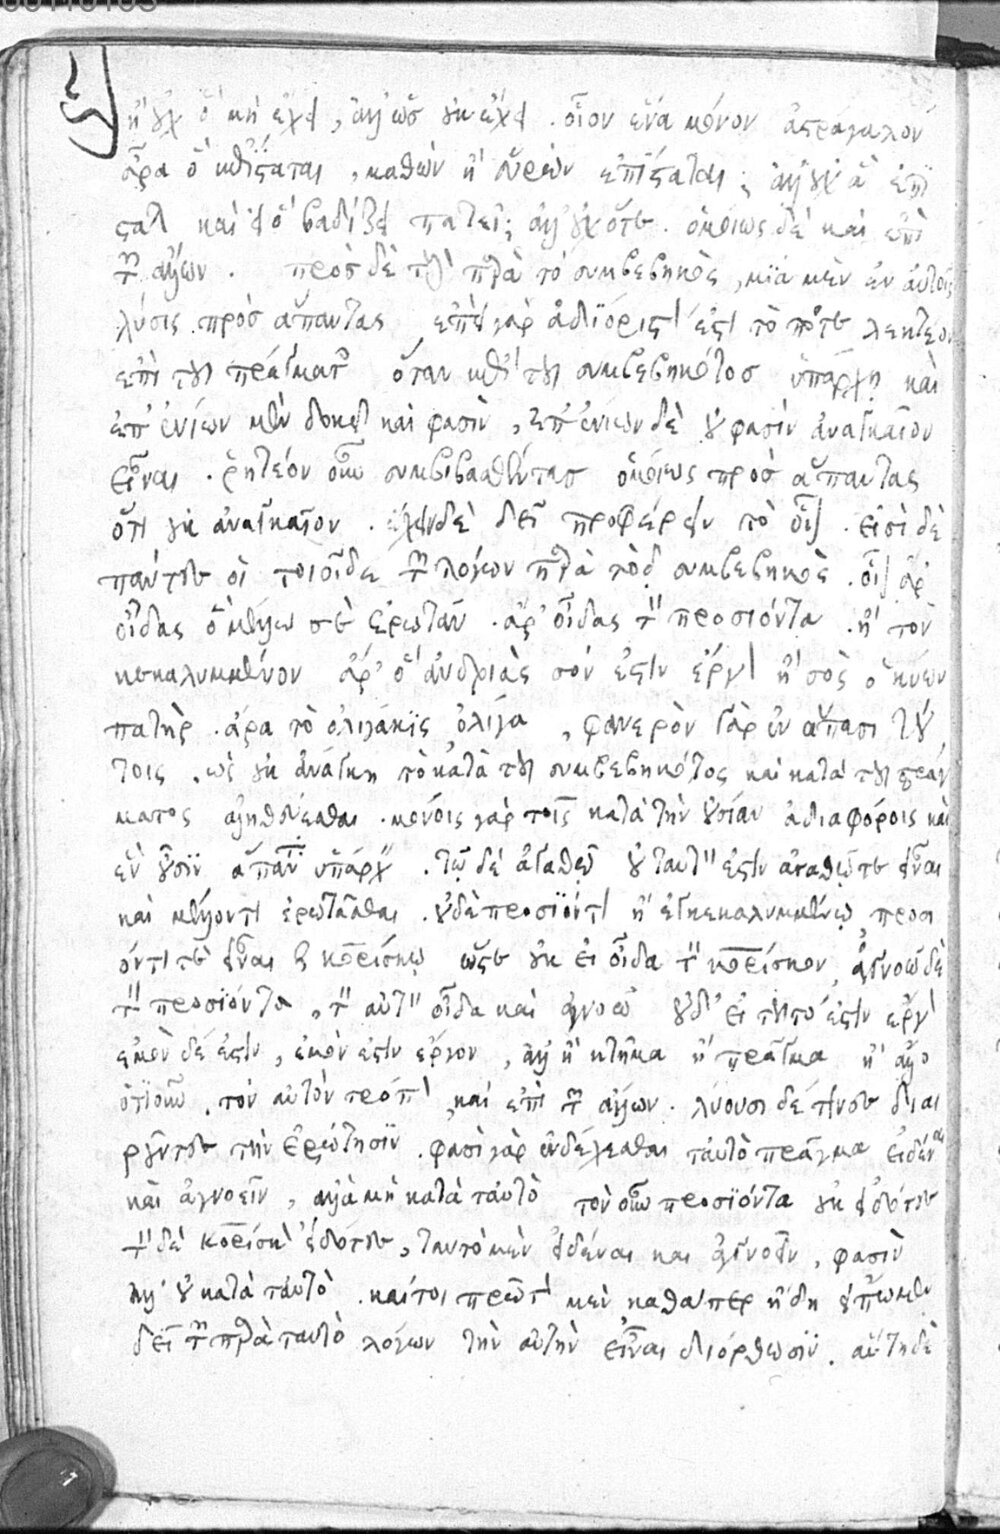 ἢ οὐχ ὃ μὴ ἔχει, ἀλλ' ὡς οὐκ ἔχει. οἷον ἕνα μόνον ἀστράγαλον
ἆρα ὃ ἐπίσταται, μαθὼν ἢ εὑρὼν ἐπίσταται; ἀλλ' οὐχ ἃ ἐπί
σταται καὶ εἰ ὃ βαδίζει πατεῖ; ἀλλ' οὐχ ὅτε. ὁμοίως δὲ καὶ ἐπὶ
τῶν ἄλλων. πρὸς δὲ τοὺς παρὰ τὸ συμβεβηκὸς, μία μὲν ἐν αὐτοῖς
λύσις πρὸς ἅπαντας ἐπεὶ γὰρ ἀδιόριστόν ἐστι τὸ πότε λεκτέον
ἐπὶ τοῦ πράγματος ὅταν ἐπὶ τοῦ συμβεβηκότος ὑπάρχῃ καὶ
ἐπ' ἐνίων μὲν δοκεῖ καὶ φασὶν, ἐπ' ἐνίων δὲ οὔ φασὶν ἀναγκαῖον
εἶναι. ῥητέον οὖν συμβιβασθέντας ὁμοίως πρὸς ἅπαντας
ὅτι οὐκ ἀναγκαῖον. ἔχειν δὲ δεῖ προφέρειν τὸ οἷον. εἰσὶ δὲ
πάντες οἱ τοιοίδε τῶν λόγων παρὰ τὸ συμβεβηκὸς. οἷον ἆρ'
οἶδας ὃ μέλλω σε ἐρωτᾶν. ἆρ' οἶδας τὸν προσιόντα. ἢ τὸν
κεκαλυμμένον ἆρ' ὁ ἀνδριὰς σόν ἐστιν ἔργον ἢ σὸς ὁ κύων
πατὴρ. ἆρα τὸ ὀλιγάκις ὀλίγα, φανερὸν γὰρ ἐν ἅπασι τού
τοις, ὡς οὐκ ἀνάγκη τὸ κατὰ τοῦ συμβεβηκότος καὶ κατὰ τοῦ πράγ
ματος ἀληθεύεσθαι. μόνοις γὰρ τοῖς κατὰ τὴν οὐσίαν ἀδιαφόροις καὶ
ἓν οὖσιν ἅπαντα ὑπάρχειν. τῷ δὲ ἀγαθῷ οὐ ταυτόν ἐστιν ἀγαθῷ τε εἶναι
καὶ μέλλοντι ἐρωτᾶσθαι. οὐδὲ προσιόντι ἢ ἐγκεκαλυμμένῳ, προσι
όντι τε εἶναι καὶ κορίσκῳ ὥστε οὐκ εἰ οἶδα τὸν κορίσκον, ἀγνοῶ δὲ
τὸν προσιόντα, τὸν αὐτὸν οἶδα καὶ ἀγνοῶ οὐδ' εἰ τοῦτό ἐστιν ἔργον
ἐμὸν δέ ἐστιν, ἐμὸν ἐστιν ἔργον, ἀλλ' ἢ κτῆμα ἢ πρᾶγμα ἢ ἄλλο
ὁτιοῦν. τὸν αὐτὸν τρόπον καὶ ἐπὶ τῶν ἄλλων. λύουσι δέ τινες διαι
ροῦντες τὴν ἐρώτησιν. φασὶ γὰρ ἐνδέχεσθαι ταὐτὸ πρᾶγμα εἰδέναι
καὶ ἀγνοεῖν, ἀλλὰ μὴ κατὰ ταὐτὸ τὸν οὖν προσιόντα οὐκ εἰδότες
τὸν δὲ κορίσκον εἰδότες, ταυτὸ μὲν εἰδέναι καὶ ἀγνοεῖν, φασὶν
ἀλλ' οὐ κατὰ ταὐτὸ. καίτοι πρῶτον μὲν καθάπερ ἤδη εἴπωμεν
δεῖ τῶν παρὰ ταυτὸ λόγων τὴν αὐτὴν εἶναι διόρθωσιν. αὕτη δὲ